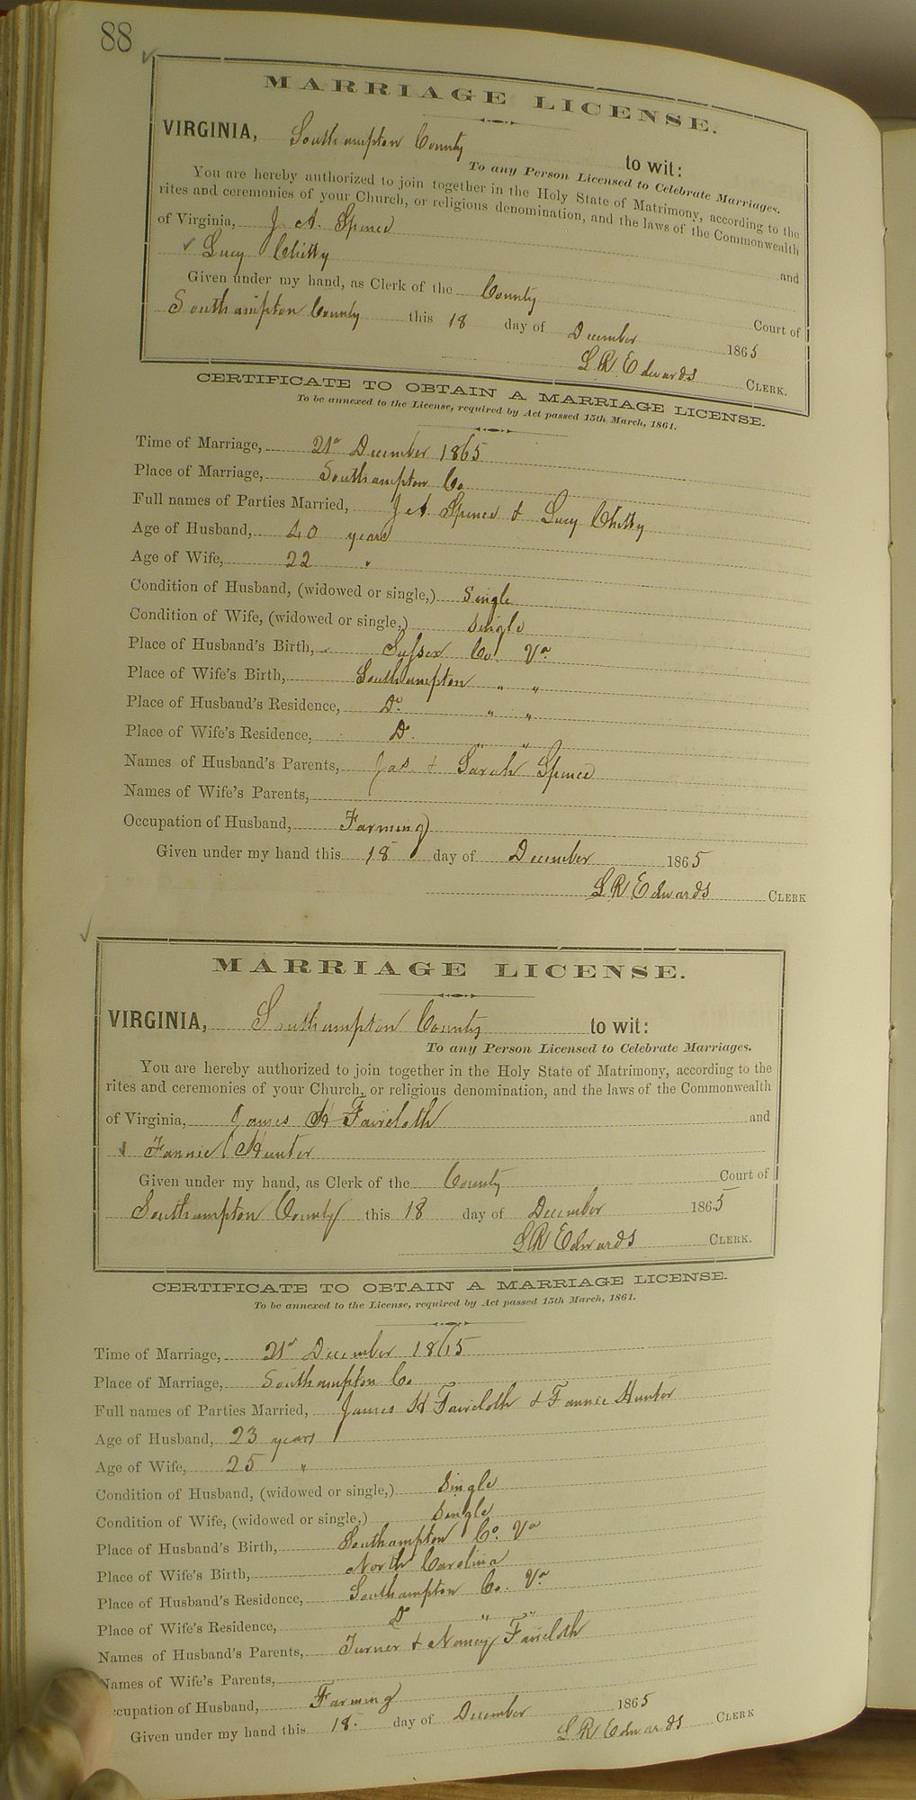 88
MARRIAGE LICENSE.
VIRGINIA, Southampton County to wit:
To any Person Licensed to Celebrate Marriages.
You are hereby authorized to join together in the Holy State of Matrimony, according to the
rites and ceremonies of your Church, or religious denomination, and the laws of the Commonwealth
of Virginia, J. A. Spence and
Lucy Chitty
Given under my hand, as Clerk of the County Court of
Southampton County this 18 day of December 1865
L R Edwards CLERK.
CERTIFICATE TO OBTAIN A MARRIAGE LICENSE.
To be annexed to the License, required by Act passed 15th March, 1861.
Time of Marriage, 21st December 1865
Place of Marriage, Southampton Co
Full names of Parties Married, J A Spence & Lucy Chitty
Age of Husband, 40 years
Age of Wife, 22 "
Condition of Husband, (widowed or single,) Single
Condition of Wife, (widowed or single,) Single
Place of Husband's Birth, Sussex Co. Va
Place of Wife's Birth, Southampton " "
Place of Husband's Residence, Do " "
Place of Wife's Residence, Do " "
Names of Husband's Parents, Jas & Sarah Spence
Names of Wife's Parents,
Occupation of Husband, Farming
Given under my hand this 18 day of December 1865
L R Edwards CLERK
MARRIAGE LICENSE.
VIRGINIA, Southampton County to wit:
To any Person Licensed to Celebrate Marriages.
You are hereby authorized to join together in the Holy State of Matrimony, according to the
rites and ceremonies of your Church, or religious denomination, and the laws of the Commonwealth
of Virginia, James H Faircloth and
Fannie Hunter
Given under my hand, as Clerk of the County Court of
Southampton County this 18 day of December 1865
L R Edwards CLERK.
CERTIFICATE TO OBTAIN A MARRIAGE LICENSE.
To be annexed to the License, required by Act passed 15th March, 1861.
Time of Marriage, 21st December 1865
Place of Marriage, Southampton Co
Full names of Parties Married, James H Faircloth & Fannie Hunter
Age of Husband, 23 years
Age of Wife, 25 "
Condition of Husband, (widowed or single,) Single
Condition of Wife, (widowed or single,) Single
Place of Husband's Birth, Southampton Co. Va
Place of Wife's Birth, North Carolina
Place of Husband's Residence, Southampton Co. Va
Place of Wife's Residence, Do " "
Names of Husband's Parents, Turner & Nancy Faircloth
Names of Wife's Parents,
ccupation of Husband, Farming
Given under my hand this 18. day of December 1865
L R Edwards CLERK